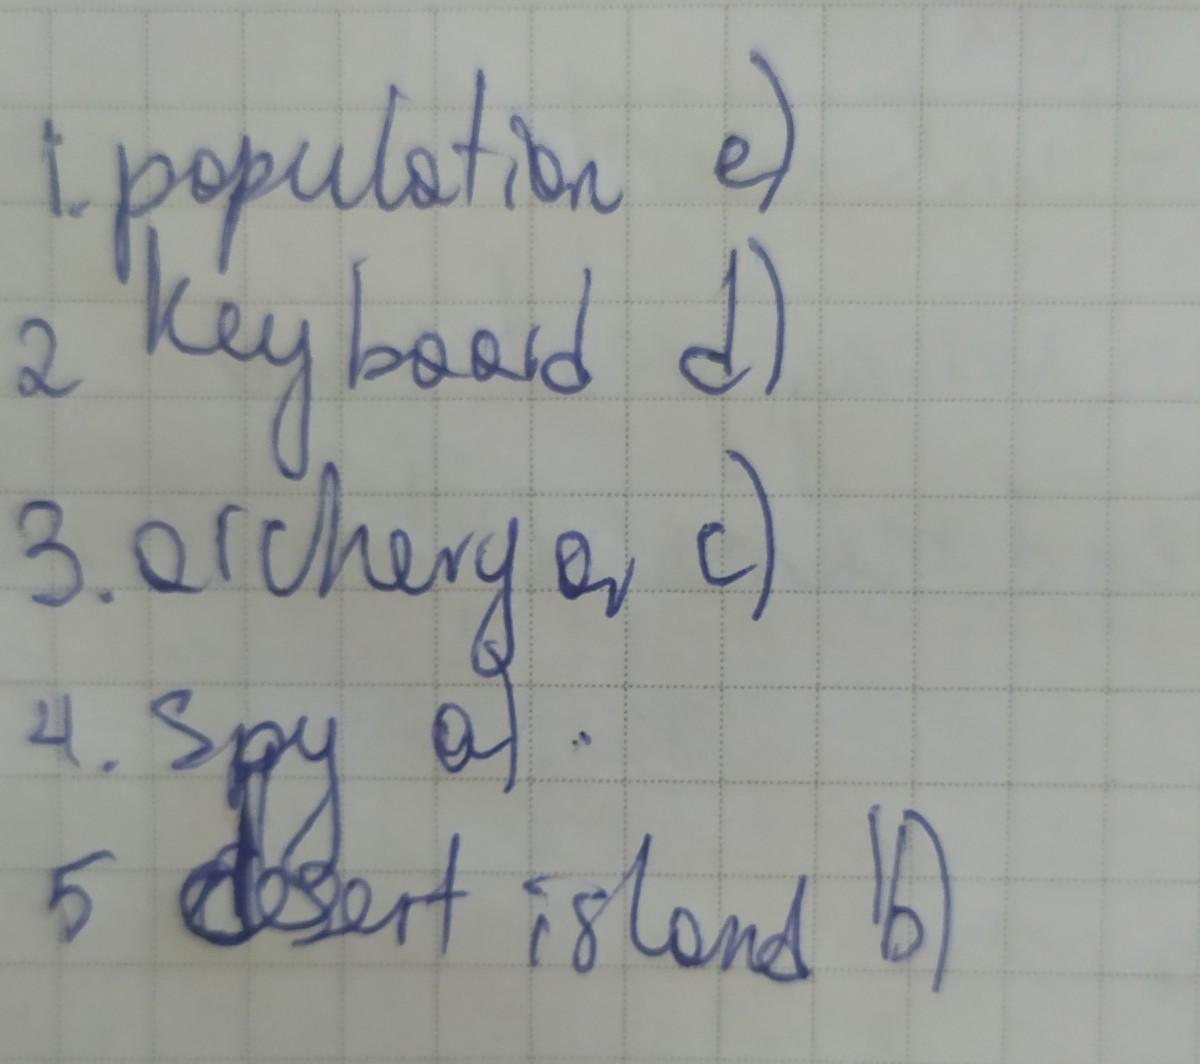 1. population e)
2 keyboard d)
3. archery a, c)
4. Spy a)
5 desert island b)